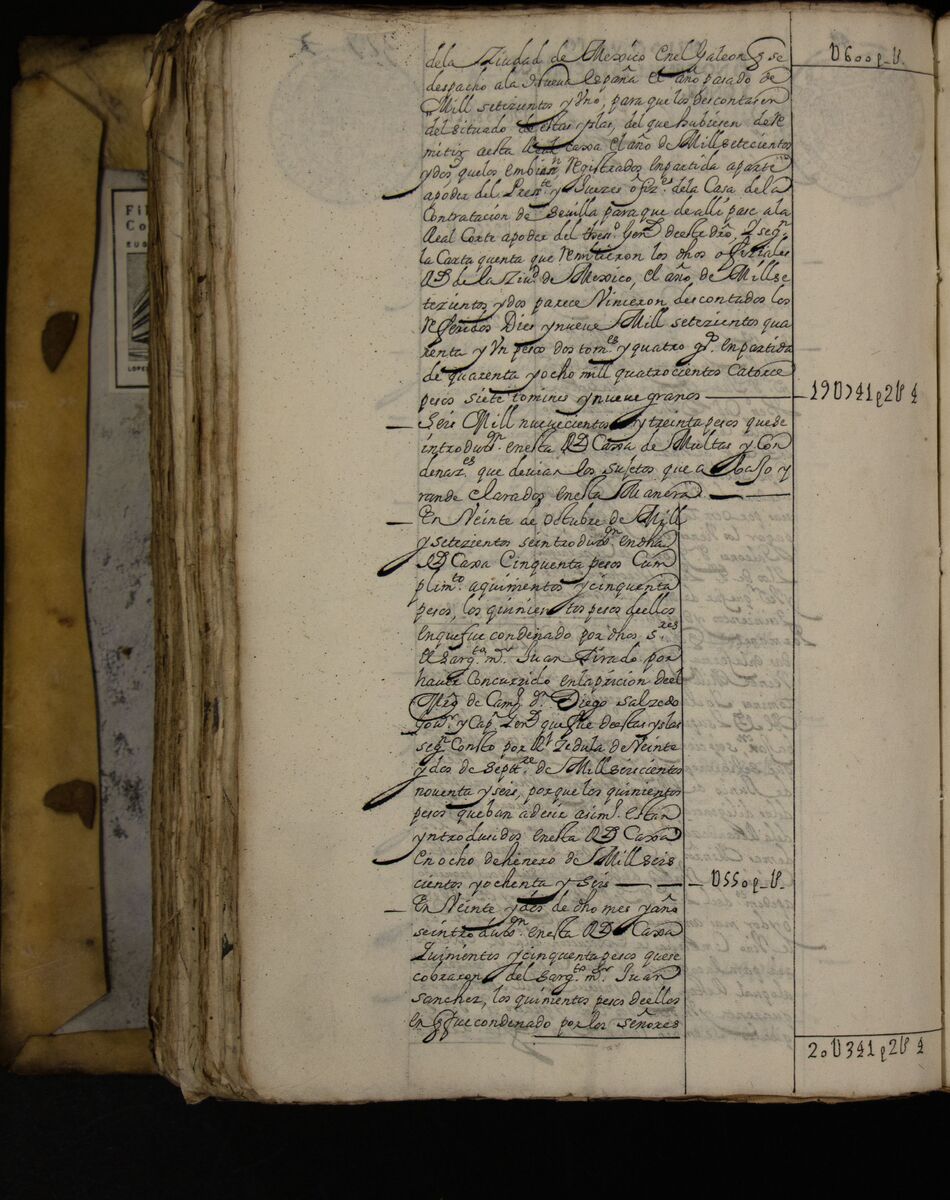 U600p_U.
dela Ziudad de Mexico Enel Galeon q̃ se
despacho ala Nueva españa el año pasado de
Mill setezientos y Uno, para que los descontasen
del situado de estas yslas, del que hubiesen de re
mitir aesta Real Caxa el año de Mill setecientos
ydos quelos embian rn registrados enpartida aparte
apoder del Presn.te y Juezes ofiz.es dela Casa dela
Contratacion de Sevilla paraque de alli pase ala
Real Corte apoder del thes.o Gen.l deeste dro, Y seg.n
la Carta quenta que remitieron los dhos ofiziales
Rs de la Ziud de Mexico, el año, de Mill se
tezientos y dos parece Vinieron descontados los
referidos Dies ynueve Mill setezientos qua
renta y Un pesos dos tom.es y quatro g.s en partida
de quarenta yocho mill quatrocientos Catorce
pesos siete tomines ynueve granos 19U741p2U4
Seis Mill nuevecientos y treinta pesos que se
introdug.n enesta Rl Caxa de Multas y Con
denaz.es que devian los sujetos que a Vaxo y
ran de clarados enesta Manera
En Veinte de octubre de Mill
y setezientos seintrodug.n en dha
Rl Caxa Cinquenta pesos Cum
plim.to aquinientos ycinquenta
pesos, los quinientos pesos deellos
enquefue condenado por dhos s.res
el sarg.to m.r Juan Tirado por
haver Concurrido enlapricion deel
Mro de Camp.o d.n Diego salzedo
Gov.r y Cap.n Gen.l que fue deestas yslas
seg.n Consto por Rl Zedula de Veinte
ydos de Sept.re de Mill seiscientos
noventa y seis, porque los quinientos
pesos que ban adesir asim.o estan
yntrodusidos enesta Rl Caxa
en ocho de henero de Mill seis
cientos yochenta y seis U550p_U.
En Veinte ydos de dho mes y año
seintrodug.n enesta Rl Caxa
Quinientos ycinquenta pesos quese
cobraron del Sarg.to m.r Juan
Sanchez, los quinientos pesos deellos
en q̃ fue condenado por los señores
20U341p2U4